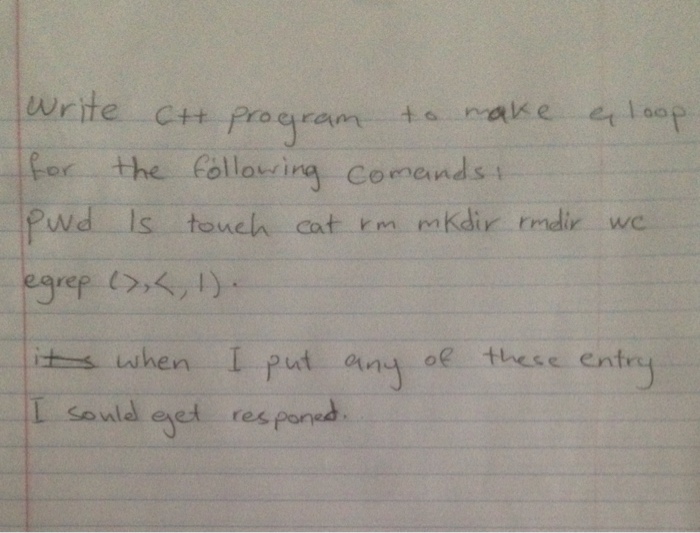 Write C++ program to make a loop
for the following comands:
pwd ls touch cat rm mkdir rmdir wc
egrep (>,<,|).
its when I put any of these entry
I sould get responed.